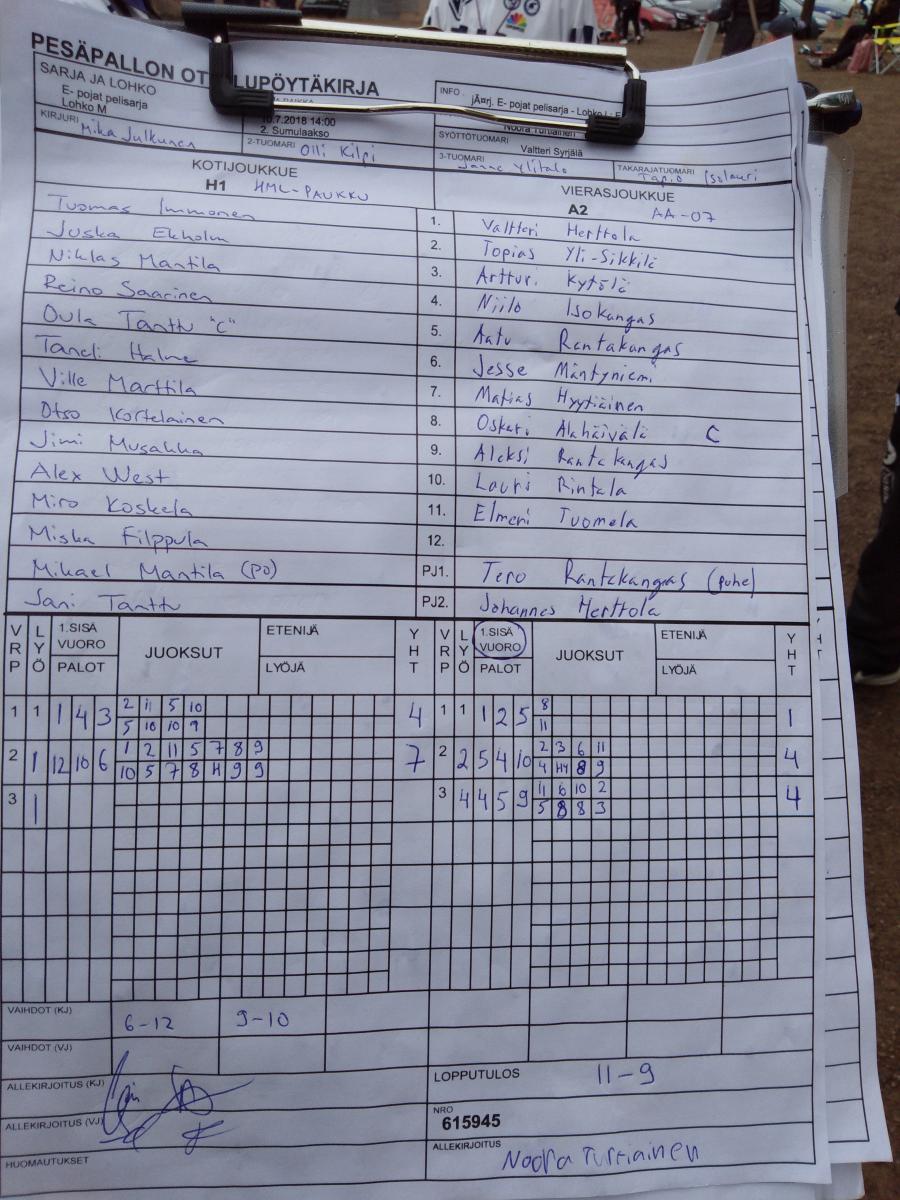 PESÄPALLON OT LUPÖYTÄKIRJA
SARJA JA LOHKO
E- pojat pelisarja
Lohko M
0.7.2018 14:00
2. Sumulaakso
INFO
järj. E- pojat pelisarja - Lohko
KIRJURI Mika Julkunen
2-TUOMARI Olli Kilpi
SYÖTTÖTUOMARI
Valtteri Syrjälä
3-TUOMARI Janne Ylitalo
TAKARAJATUOMARI Tapio Isolauri
KOTIJOUKKUE
H1 HML-PAUKKU
VIERASJOUKKUE
A2 AA-07
Tuomas Immonen 1. Valtteri Herttola
Juska Ekholm 2. Topias Yli-Sikkilä
Niklas Mantila 3. Artturi Kytölä
Reino Saarinen 4. Niilo Isokangas
Oula Tanttu "C" 5. Aatu Rantakangas
Taneli Halme 6. Jesse Mäntyniemi
Ville Marttila 7. Matias Hyytiäinen
Otso Kortelainen 8. Oskari Alahäivälä C
Jimi Musakka 9. Aleksi Rantakangas
Alex West 10. Lauri Rintala
Miro Koskela 11. Elmeri Tuomela
Miska Filppula 12.
Mikael Mantila (PJ) PJ1. Tero Rantakangas (puhe)
Jani Tanttu PJ2. Johannes Herttola
VRP LYÖ 1.SISÄ VUORO PALOT JUOKSUT ETENIJÄ LYÖJÄ YHT VRP LYÖ 1.SISÄ VUORO PALOT JUOKSUT ETENIJÄ LYÖJÄ YHT
1 1 1 4 3 2 11 5 10 4 1 1 1 2 5 8 1
5 10 10 9 11
2 1 12 10 6 1 2 11 5 7 8 9 7 2 2 5 4 10 2 3 6 11 4
10 5 7 8 H 9 9 4 H4 8 9
3 1 3 4 4 5 9 11 6 10 2 4
5 8 8 3
VAIHDOT (KJ) 6-12 9-10
VAIHDOT (VJ)
ALLEKIRJOITUS (KJ)
LOPPUTULOS 11-9
ALLEKIRJOITUS (VJ)
NRO
615945
HUOMAUTUKSET
ALLEKIRJOITUS Noora Turtiainen